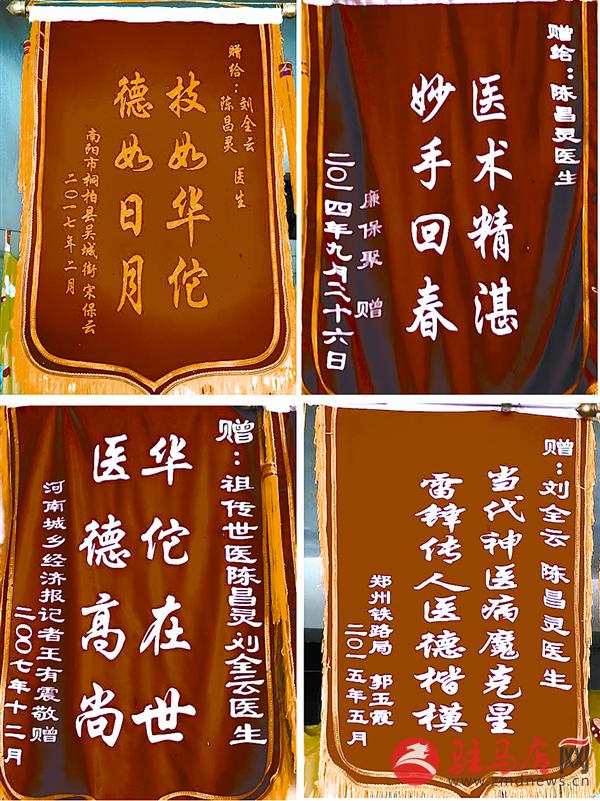 赠给：刘全云
陈昌灵 医生
技如华佗
德如日月
南阳市桐柏县吴城街宋保云
二〇一七年二月
赠给：陈昌灵医生
医术精湛
妙手回春
廉保聚 赠
二〇一四年九月二十六日
赠：祖传世医陈昌灵刘全云医生
华佗在世
医德高尚
河南城乡经济报记者王有震敬赠
二〇〇七年十二月
赠：刘全云 陈昌灵医生
当代神医病魔克星
雷锋传人医德楷模
郑州铁路局 郭玉霞
二〇一五年五月
驻马店网
www.zmdnews.cn